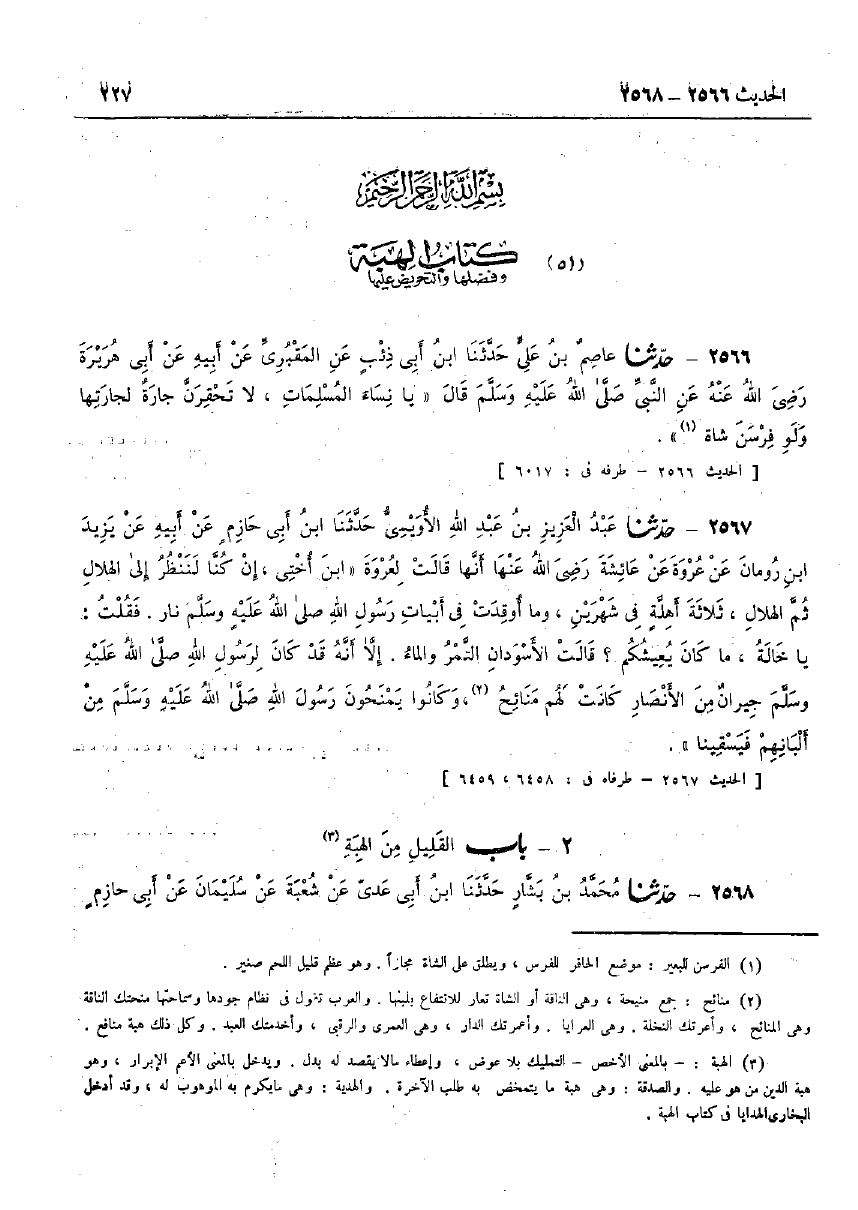 الحديث ٢٥٦٦ – ٢٥٦٨
٢٢٧
بسم الله الرحمن الرحيم
(٥١) كتاب الهبة
وفضلها والتحريض عليها
٢٥٦٦ – حدّثنا عاصِمُ بنُ عَلِيٍّ حَدَّثَنَا ابنُ أَبى ذِئْبٍ عَنِ المَقْبُرِىِّ عَنْ أَبيهِ عَنْ أَبى هُرَيْرَةَ
رَضِىَ اللهُ عَنْهُ عَنِ النَّبىِّ صَلَّى اللهُ عَلَيْهِ وَسَلَّمَ قَالَ « يا نِسَاءَ المُسْلِمَاتِ ، لا تَحْقِرَنَّ جارَةٌ لجارَتِها
وَلَو فِرْسَنَ شاة (١) » .
[ الحديث ٢٥٦٦ – طرفه فى : ٦٠١٧ ]
٢٥٦٧ – حدّثنا عَبْدُ الْعَزِيزِ بنُ عَبْدِ اللهِ الأُوَيْسِىُّ حَدَّثَنَا ابنُ أَبى حَازِمٍ عَنْ أَبِيهِ عَنْ يَزِيدَ
ابنِ رُومانَ عَنْ عُرْوَةَ عَنْ عَائِشَةَ رَضِىَ اللهُ عَنْهَا أَنَّها قَالَتْ لِعُرْوَةَ « ابنَ أُخْتِى ، إِنْ كُنَّا لَنَنْظُرُ إِلىٰ الهلالِ
ثُمَّ الهلالِ ، ثَلاثَةَ أَهِلَّةٍ فِى شَهْرَيْنِ ، وما أُوقِدَتْ فِى أَبْيَاتِ رَسُولِ اللهِ صلىٰ اللهُ عَلَيْهِ وسَلَّمَ نار . فَقُلْتُ :
يا خالَةُ ، ما كَانَ يُعِيشُكُم ؟ قالَتْ الأَسْوَدانِ التَّمْرُ والماءُ . إِلاَّ أَنَّهُ قَدْ كَانَ لِرَسُولِ اللهِ صَلَّىٰ اللهُ عَلَيْهِ
وسَلَّمَ جِيرانٌ مِنَ الأَنْصَارِ كَانَتْ لَهُم مَنَائِحُ (٢) ، وَكَانُوا يَمْنَحُونَ رَسُولَ اللهِ صَلَّىٰ اللهُ عَلَيْهِ وَسَلَّمَ مِنْ
أَلْبَانِهِمْ فَيَسْقِينا » .
[ الحديث ٢٥٦٧ – طرفاه فى : ٦٤٥٨ ، ٦٤٥٩ ]
٢ – باب القَلِيلِ مِنَ الهِبَةِ (٣)
٢٥٦٨ – حدّثنا مُحَمَّدُ بنُ بَشَّارٍ حَدَّثَنَا ابنُ أَبِى عَدىٍّ عَنْ شُعْبَةَ عَنْ سُلَيْمَانَ عَنْ أَبِى حازِمٍ
(١) الفرسن للبعير : موضع الحافر للفرس ، ويطلق على الشاة مجازاً . وهو عظم قليل اللحم صغير .
(٢) منائح : جمع منيحة ، وهى الناقة أو الشاة تعار للانتفاع بلبنها . والعرب تقول فى نظام جودها وسماحتها منحتك الناقة
وهى المنائح ، وأعرتك النخلة . وهى العرايا . وأعمرتك الدار ، وهى العمرى والرقبى ، وأخدمتك العبد . وكل ذلك هبة منافع .
(٣) الهبة : – بالمعنى الأخص – التمليك بلا عوض ، وإعطاء مالا يقصد له بدل . ويدخل بالمعنى الأعم الإبرار ، وهو
هبة الدين من هو عليه . والصدقة : وهى هبة ما يتمحض به طلب الآخرة . والهدية : وهى مايكرم به الموهوب له ، وقد أدخل
البخارى الهدايا فى كتاب الهبة .